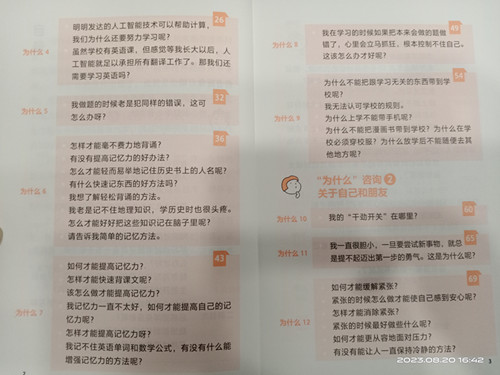 26
明明发达的人工智能技术可以帮助计算，
我们为什么还要努力学习呢？
为什么 4
虽然学校有英语课，但感觉等我长大以后，人
工智能就足以承担所有翻译工作了。那我们还
需要学习英语吗？
32
我做题的时候老是犯同样的错误，这可
为什么 5
怎么办呀？
36
怎样才能毫不费力地背诵？
有没有提高记忆力的好办法？
怎么才能轻而易举地记住历史书上的人名呢？
有什么快速记东西的好方法吗？
为什么 6
我想了解轻松背诵的方法。
我老是记不住地理知识，学历史时也很头疼。
怎么才能好好把这些知识记在脑子里呢？
请告诉我简单的记忆方法。
43
如何才能提高记忆力？
怎样才能快速背课文呢？
该怎么做才能提高记忆力？
我记忆力一直不太好，如何才能提高自己的记
为什么 7
忆力呢？
怎样才能提高记忆力呀？
我记不住英语单词和数学公式，有没有什么能
增强记忆力的方法呢？
2
49
我在学习的时候如果把本来会做的题做
为什么 8
错了，心里会立马抓狂，根本控制不住自己。
这该怎么办才好呢？
54
为什么不能把跟学习无关的东西带到学
校呢？
我无法认可学校的规则。
为什么 9
为什么上学不能带手机呢？
为什么不能把漫画书带到学校？为什么在学
校必须穿校服？为什么放学后不能随便去其
他地方呢？
“为什么”咨询 2
关于自己和朋友
60
为什么 10
我的“干劲开关”在哪里？
65
我一直很胆小，一旦要尝试新事物，就总
为什么 11
是提不起迈出第一步的勇气。这是为什么呢？
69
如何才能缓解紧张？
紧张的时候怎么做才能使自己感到安心呢？
怎样才能消除紧张？
为什么 12
紧张的时候最好做些什么呢？
如何才能更从容地面对压力？
有没有能让人一直保持冷静的方法？
3
2023.08.20 16:42